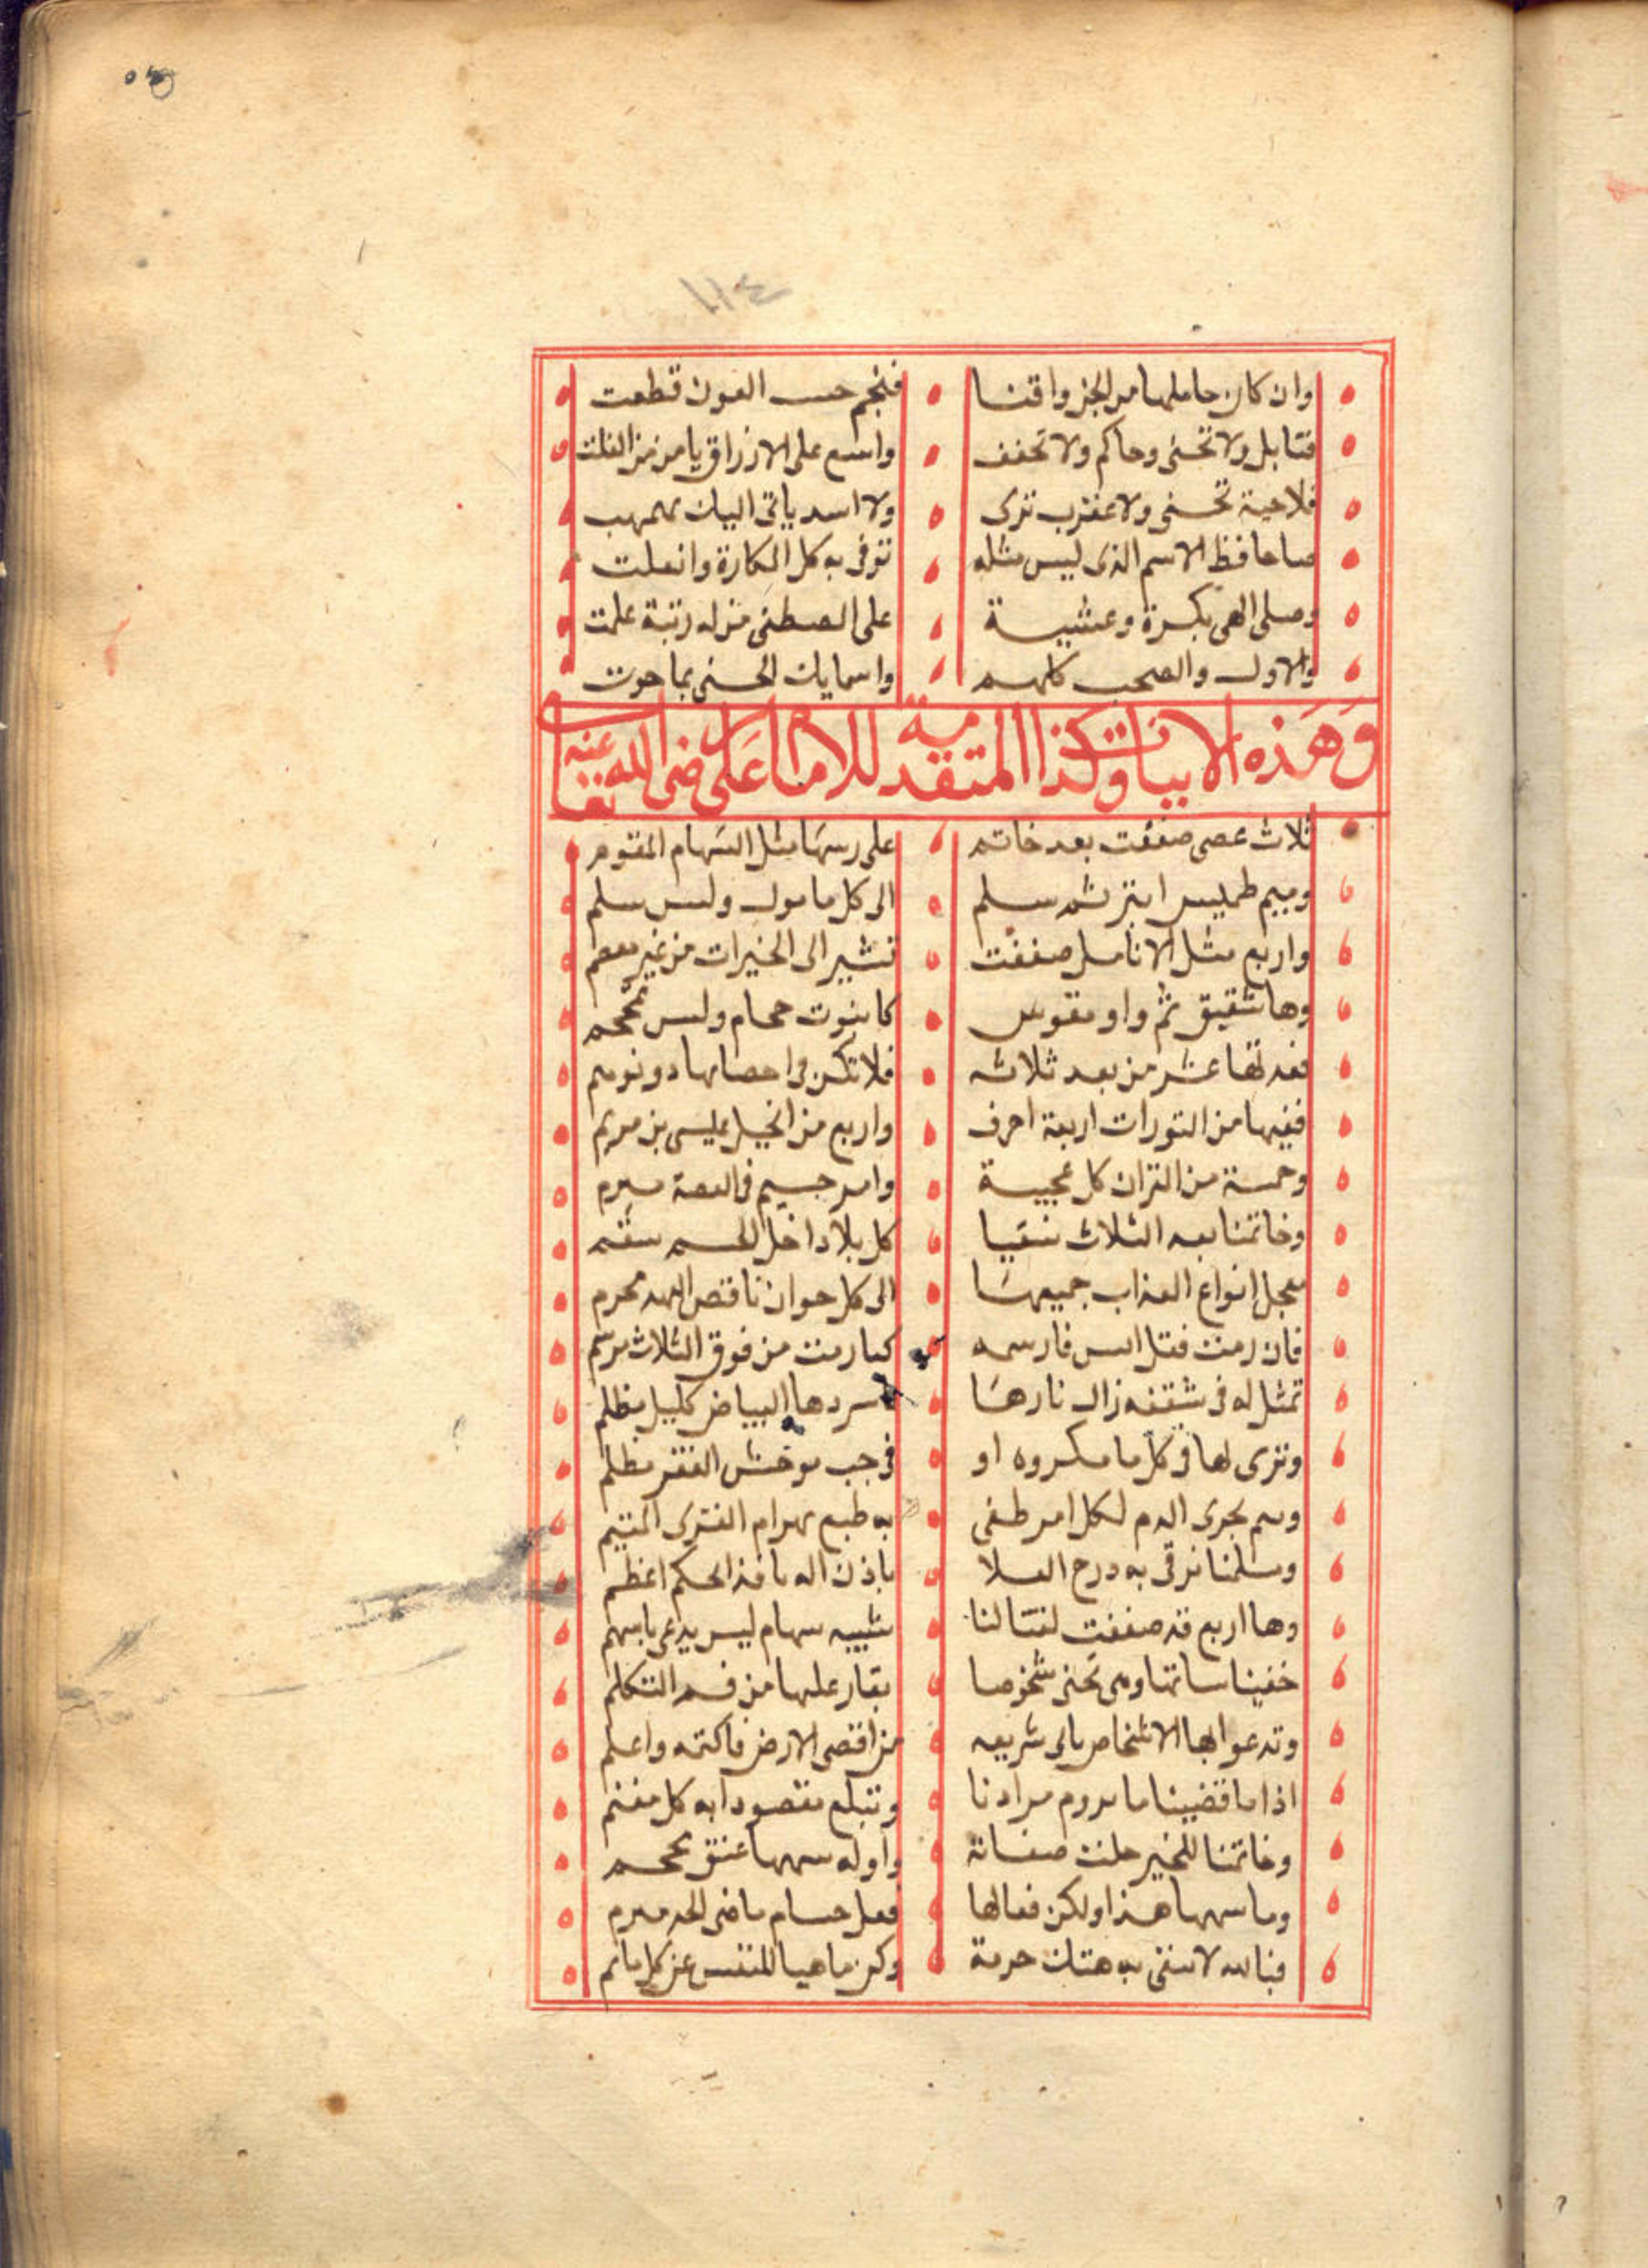 ١١٤
وان كان حاملها من الجن واقنا فنجم حسب العون قطعت
فقابل ولا تخشى وحاكم ولا تخف واسع على الارزاق يامن من الفلت
فلا حية تخشى ولا عقرب ترى ولا اسد ياتى اليك بهمهب
حافظ الاسم الذى ليس مثله توقى به كل المكارة وانعلت
وصلى الهى بكرة وعشية على المصطفى من له رتبة علت
والاول والصحب كلهم واسمايك الحسنى بما حوت
وهذه الابيات وكذا المتقدمة للامام على رضى الله تعالى عنه
ثلاث عصى صففت بعد خاتم على رسها مثل السهام المقوم
وميم طميس ابتر ثم سلم الى كل مامول وليس سلم
واربع مثل الانامل صففت تشير الى الخيرات من غير معصم
وها شقيق ثم واو مقوس كانبوت حجام وليس بمحجم
فعدتها عشر من بعد ثلاثه فلا تكن فى احصايها دو توهم
ففيها من التورات اربعة احرف واربع من انجيل عيسى بن مريم
وخمسة من القران كل عجيبة وامر جسيم فى القصة مبرم
وخاتمنا بعد الثلاث تبقيا كل بلاد اخل الجسم سقم
معجل انواع العذاب جميعها الى كل خوان ناقص العهد محرم
فان رمت فقل ابس فارسمه كما رمت من فوق الثلاث مرسم
تمثل له فى شقفه زال نارها سردها البياض كليل مظلم
وترى لها فى كل ما مكروه او فى جب موحش القفر مظلم
وسم بجرى الدم لكل امر طغى به طبع بهرام الفترى المقيم
وسلمنا نرقى به درج العلا باذن اله نافذ الحكم اعظم
وها اربع قد صففت لقتالنا شبيه سهام ليس يدعى باسهم
خفينا ساتها وهى تحنى شخوصا بقار عليها من فم التكلم
وتدعوا بها الاشخاص ياتى شريعه من اقصى الارض فاكتمه واعلم
اذا ما قضينا ما نروم مرادنا وتبلع مقصودا به كل مغنم
وخاتمنا للخير حلت صفاته واوله سهها عنق محجم
وما سهها هذا ولكن فعالها فعل حسام ماضى الحد مبرم
فبالله لا تبقى به هتك حرمة وكن ناهيا للنفس عن كل ماثم